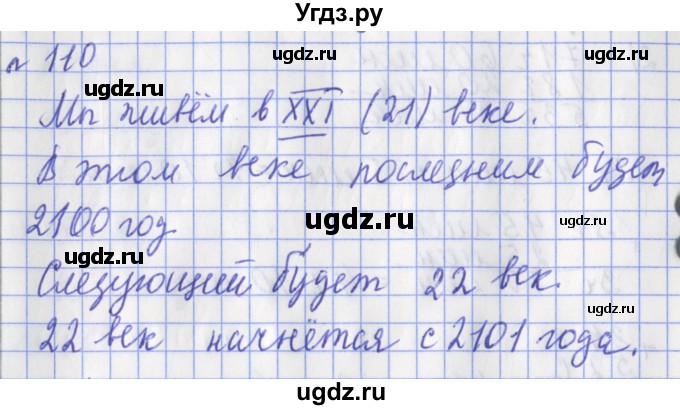 Угдз.ру
№ 110
Мы живём в XXI (21) веке.
В этом веке последним будет
2100 год
Следующий будет 22 век.
22 век начнётся с 2101 года.
ugdz.ru
ugdz.ru
ugdz.ru
ugdz.ru
ugdz.ru
ugdz.ru
ugdz.ru
ugdz.ru
ugdz.ru
ugdz.ru
ugdz.ru